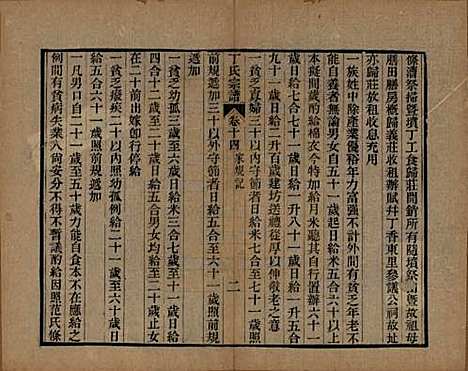 條濟祭掃曁墳丁工食歸莊開銷所有隨墳祭曁祖母
膳田膳房槪歸義莊收租辦賦幷丁香東里參議公祠故址
亦歸莊放租收息充用
一族姓中除產業優裕年力富强不計外間有貧乏年老不
能自養者無論男女自五十一歲起日給米五合六十一
本擬間歲酌給棉衣今特加給月米聽其自行置辦六十一
歲日給七合七十一歲日給一升八十一歲日給一升五合
九十一歲日給二升百歲建坊送總從厚以伸敬老之意
一貧乏貞婦三十歲以內守節者日給五合至七十一歲
丁氏宗譜
卷十四
家規記
二
前規遞加三十以外守節者五十一歲日給
遞加
一貧乏幼孤三歲日給米三合七歲至十一歲日給
四合十二歲至二十歲日給五合男女均給至二十止女
在二十前出嫁卽行停給
一貧乏癈疾二十以內照幼孤例給二十一歲至六十歲日
給五合六十一歲照前規遞加
一凡男口自二十一歲至五十歲力能自食本不在應給之
例間有貧病失業八尙妥分不得不暫議酌給因照范氏條